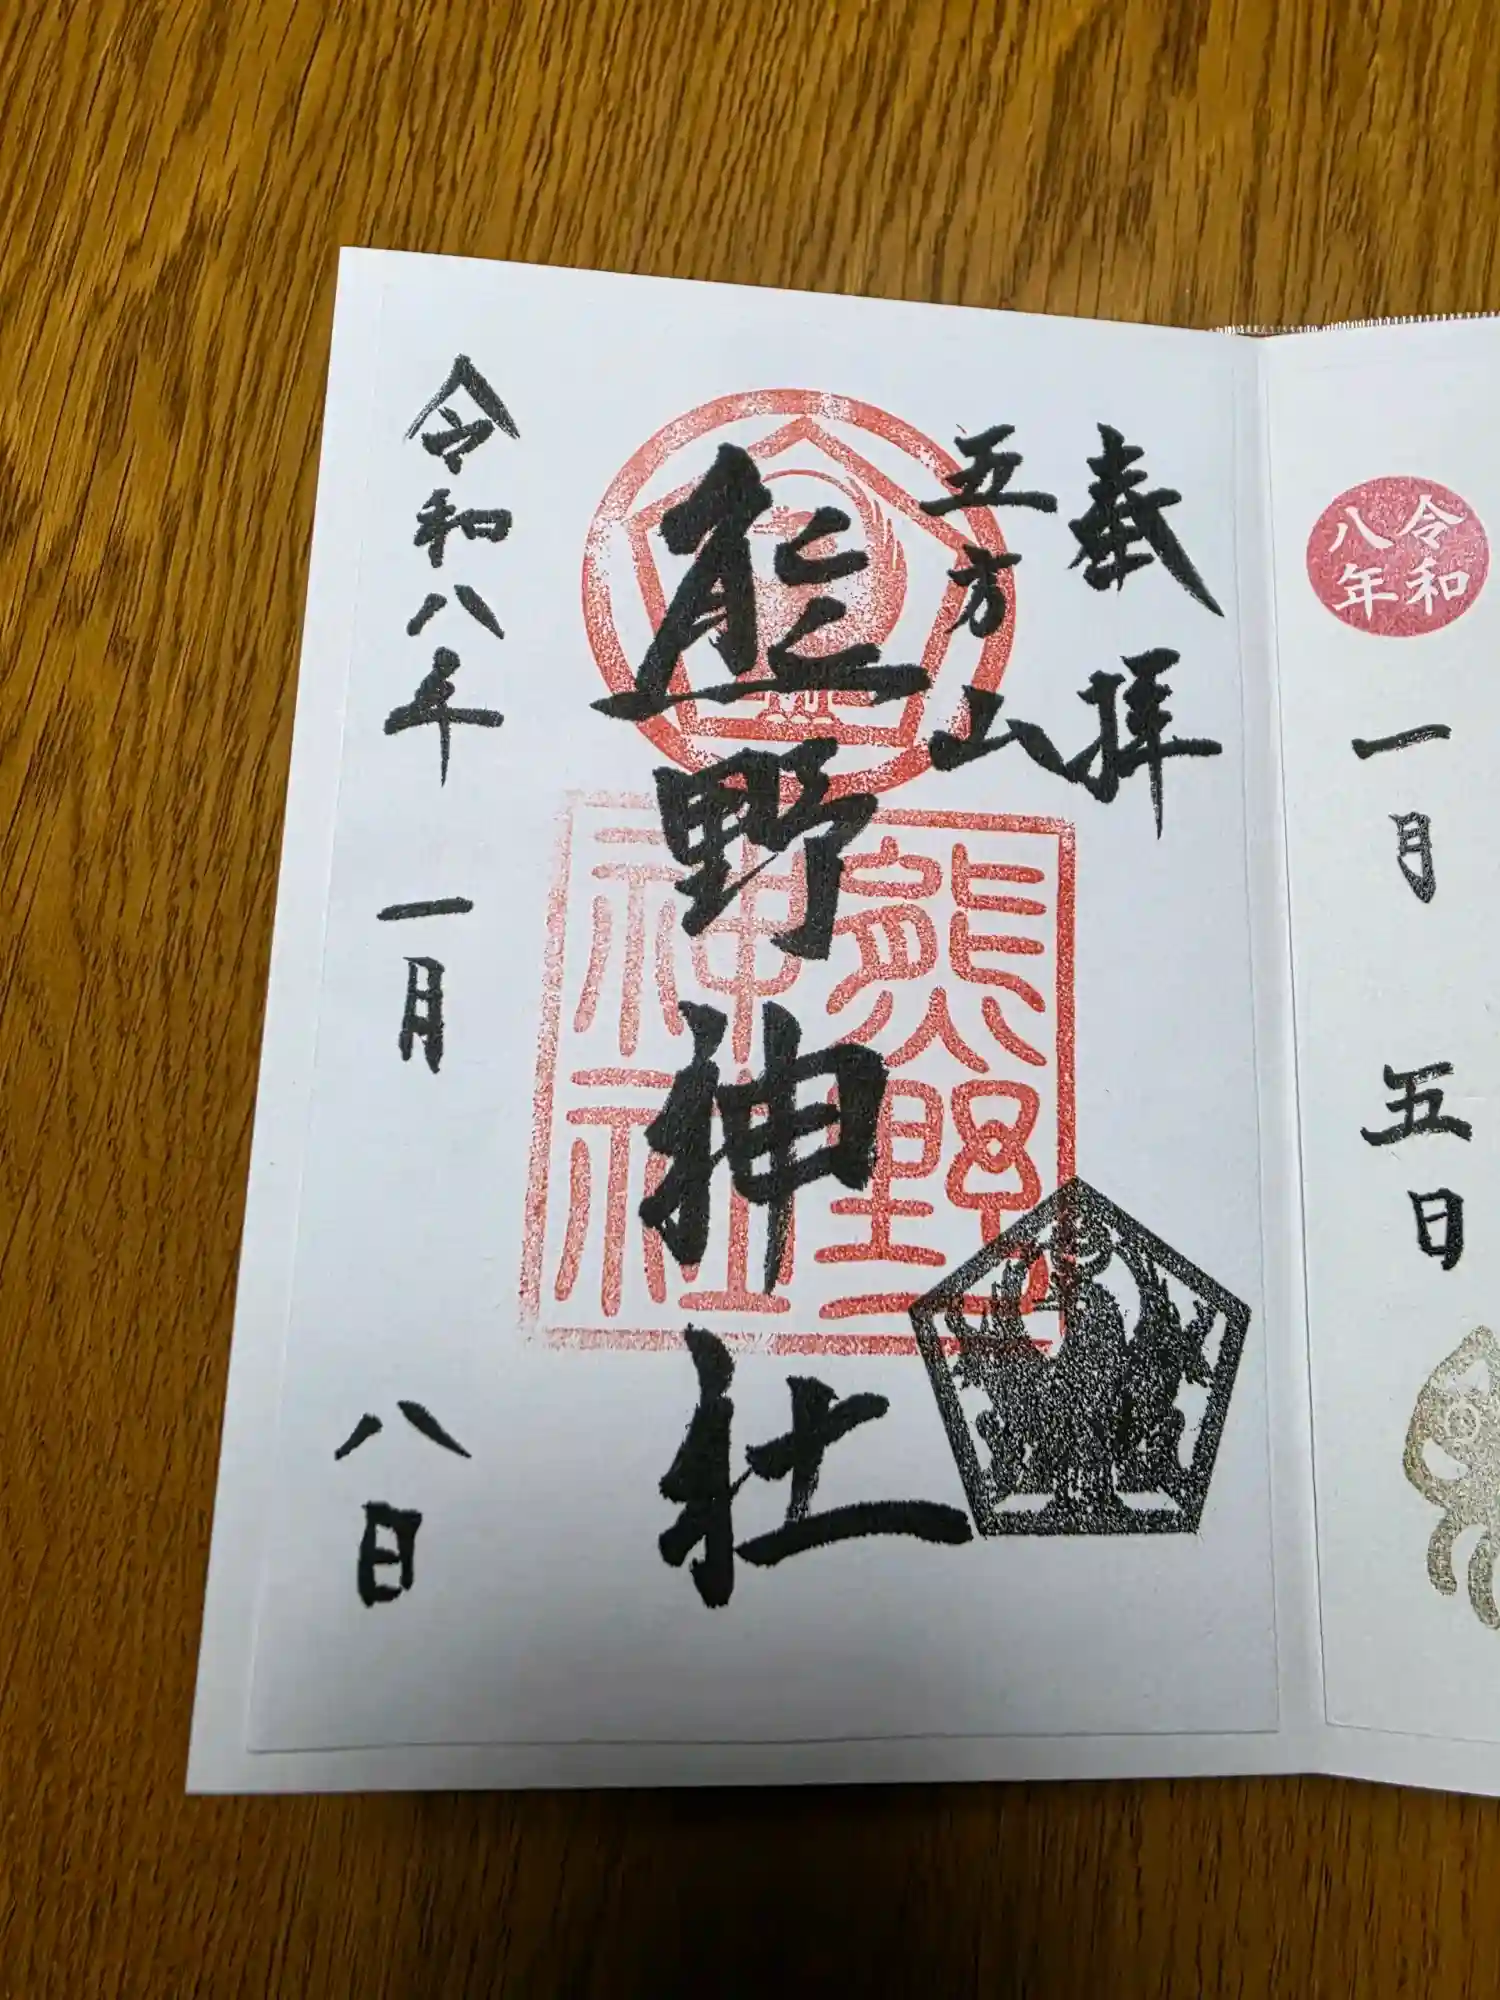 令和
八年
一月
五日
奉拝
五方山
熊野神社
熊野
神社
令和八年一月八日